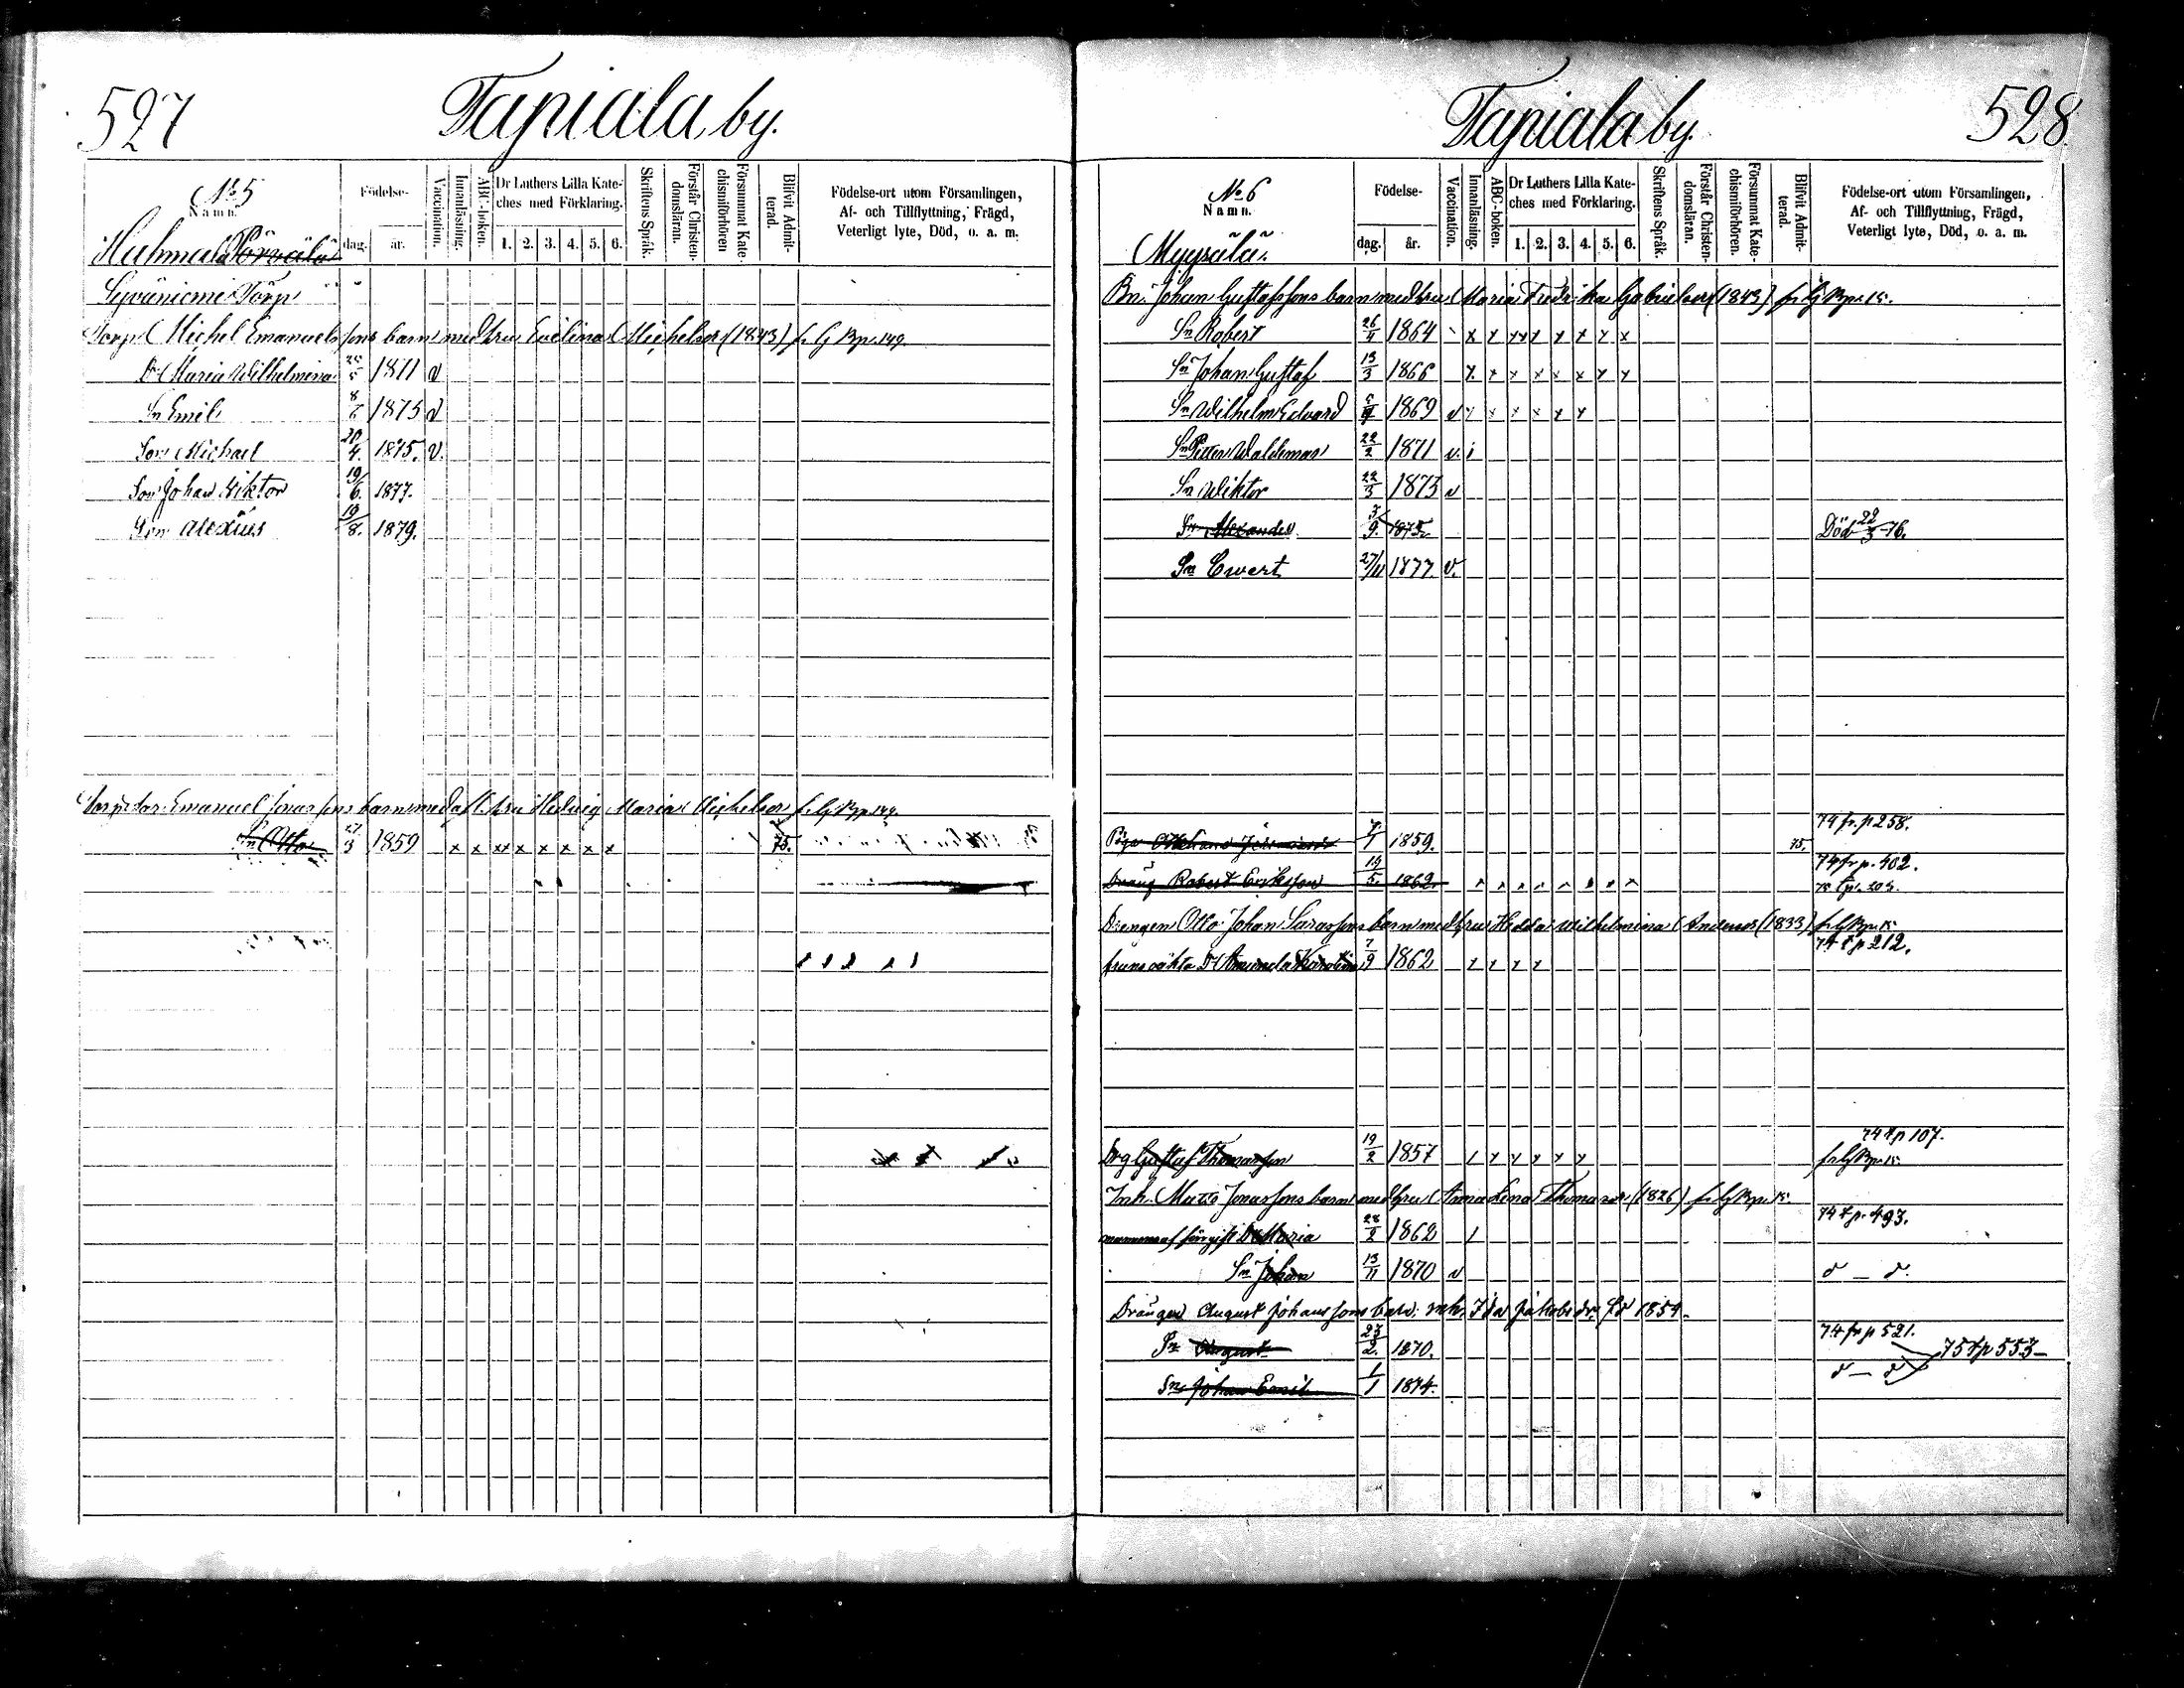 527
Tapiala by.
No 5
Namn.
Huhmala Pörsälä
Födelse-
dag.
år.
Vaccination.
Innanläsning.
ABC-boken.
Dr Luthers Lilla Kate-
ches med Förklaring.
1. 2. 3. 4. 5. 6.
Skriftens Språk.
Förstår Christen-
domsläran.
Försummat Kate-
chismiförhören
Blifvit Admit-
terad.
Födelse-ort utom Församlingen,
Af- och Tillflyttning, Frägd,
Veterligt lyte, Död, o. a. m.
Syväniemi Torp
Torp. Michel Emanuelssons barn med hru Evelina Michelsdr (1843) fr. G Bp. 149.
Dr Maria Wilhelmina 25/5 1871 v
Sn Emil 8/6 1873 v
Son Michael 20/4. 1875. v.
Son Johan Viktor 19/6. 1877.
Son Alexius 19/8. 1879.
Torpar Emanuel Jonassons barn med afl. hru Hedvig Maria Michelsdr fr. G Bp 149.
Sn Otto 27/3 1859 x x xx x x x x x 75.
528.
Tapiala by.
No 6
Namn.
Myysälä.
Födelse-
dag.
år.
Vaccination.
Innanläsning.
ABC-boken.
Dr Luthers Lilla Kate-
ches med Förklaring.
1. 2. 3. 4. 5. 6.
Skriftens Språk.
Förstår Christen-
domsläran.
Försummat Kate-
chismiförhören.
Blifvit Admit-
terad.
Födelse-ort utom Församlingen,
Af- och Tillflyttning, Frägd,
Veterligt lyte, Död, o. a. m.
Bn. Johan Gustafssons barn med hru Maria Fredrika Gabrielsdr (1843) fr G Bp. 15.
Sn Robert 26/4 1864 x x xx x x x x x
Sn Johan Gustaf 13/3 1866 x x x x x x x x
Sn Wilhelm Edvard 1869 v x x x x x x
Sn Petter Waldemar 22/2 1871 v. i
Sn Wiktor 22/3 1873 v
Sn Alexander 3/9. 1875. Död 22/3 -76.
Sn Evert 27/11 1877. v.
74 fr. p 258.
Piga 1859. 75.
74 fr p. 402.
Dräng Robert Eriksson 19/5. 1862.
Drengen Otto Johan Sarassons barn med hru Hedda Wilhelmina Andersdr (1833) fr G Bp. 15
74 t p 212.
hruns oäkta Dr Amanda Karolina 7/9 1862 x x x x
74 t p 107.
Drg Gustaf Thomasson 19/2 1857 fr G Bp. 15.
Inh. Matts Jonassons barn med hru Anna Lena Thomasdr (1826) fr G Bp. 15.
74 t p. 493.
Dr Maria 28/2 1862
Sn Johan 13/11 1870 v d – d.
Drängen August Johanssons barn m. h. Ida Jakobsdr, fd 1854.
74 fr p 521.
Sn August 23/2. 1870. 75 t p 553
Sn Johan Emil 1/1 1874. d – d